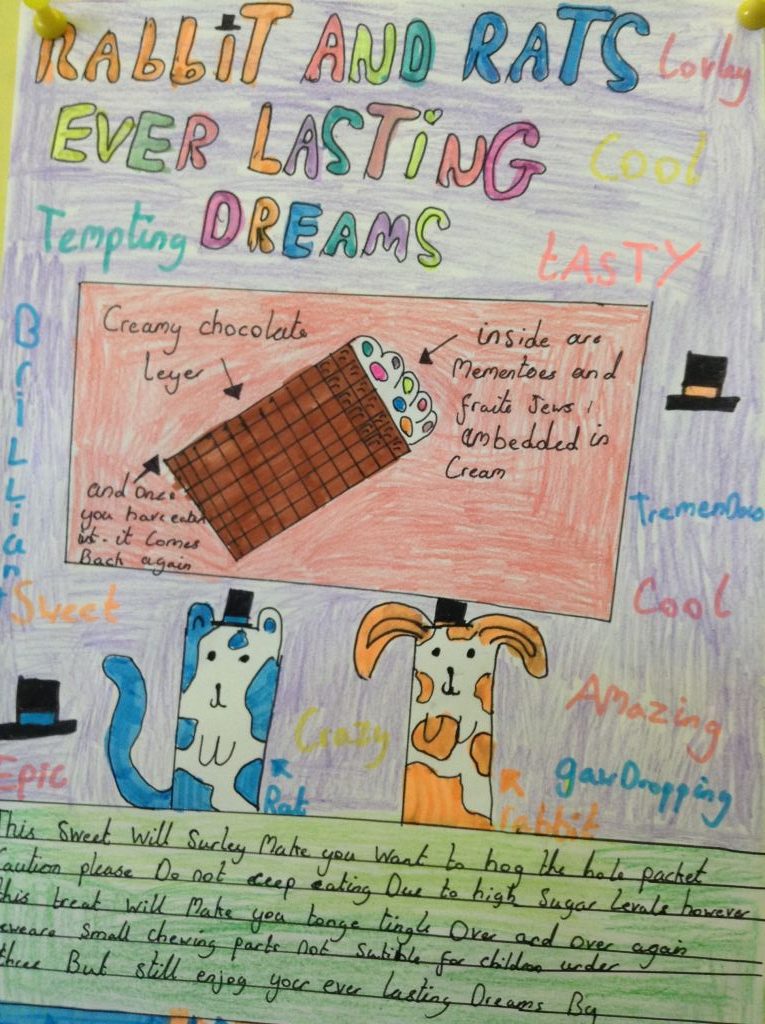 RAbbiT AND RATS
Lovley
EVER LASTiNG
Cool
DREAMS
Tempting
tAsTY
Creamy chocolate
leyer
inside are
Mementoes and
fruite Jews,
embedded in
Cream
and once
you have eaten
it it Comes
Back again
BrilliAnt
TremenDous
Sweet
Cool
Amazing
Crazy
gawDropping
Epic
Rat
rabbit
This Sweet Will Surley Make you Want to hog the hole packet
Caution please Do not keep eating Due to high Sugar Levals however
this treat will Make you tonge tingle Over and over again
beweare Small chewing parts not Sutible for children under
three But still enjoy your ever lasting Dreams By